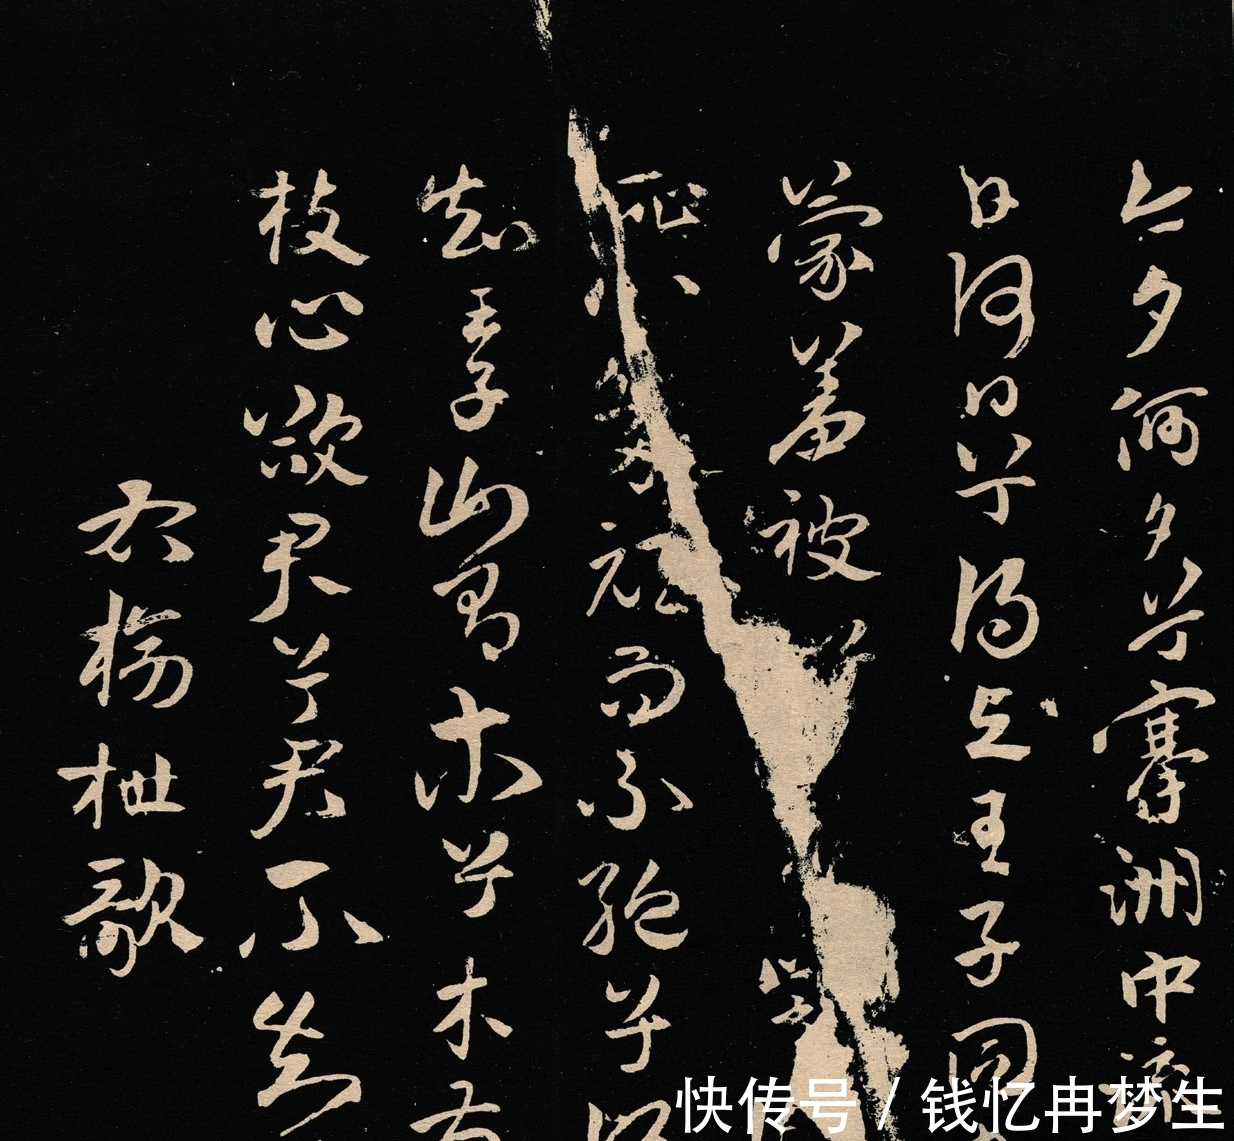 今夕何夕兮搴洲中流
日何日兮得与王子同
蒙羞被兮
心 頑而不絶兮
知王子山有木兮木有
枝心悦君兮君不知
右榜枻歌
快传号 / 钱忆冉梦生